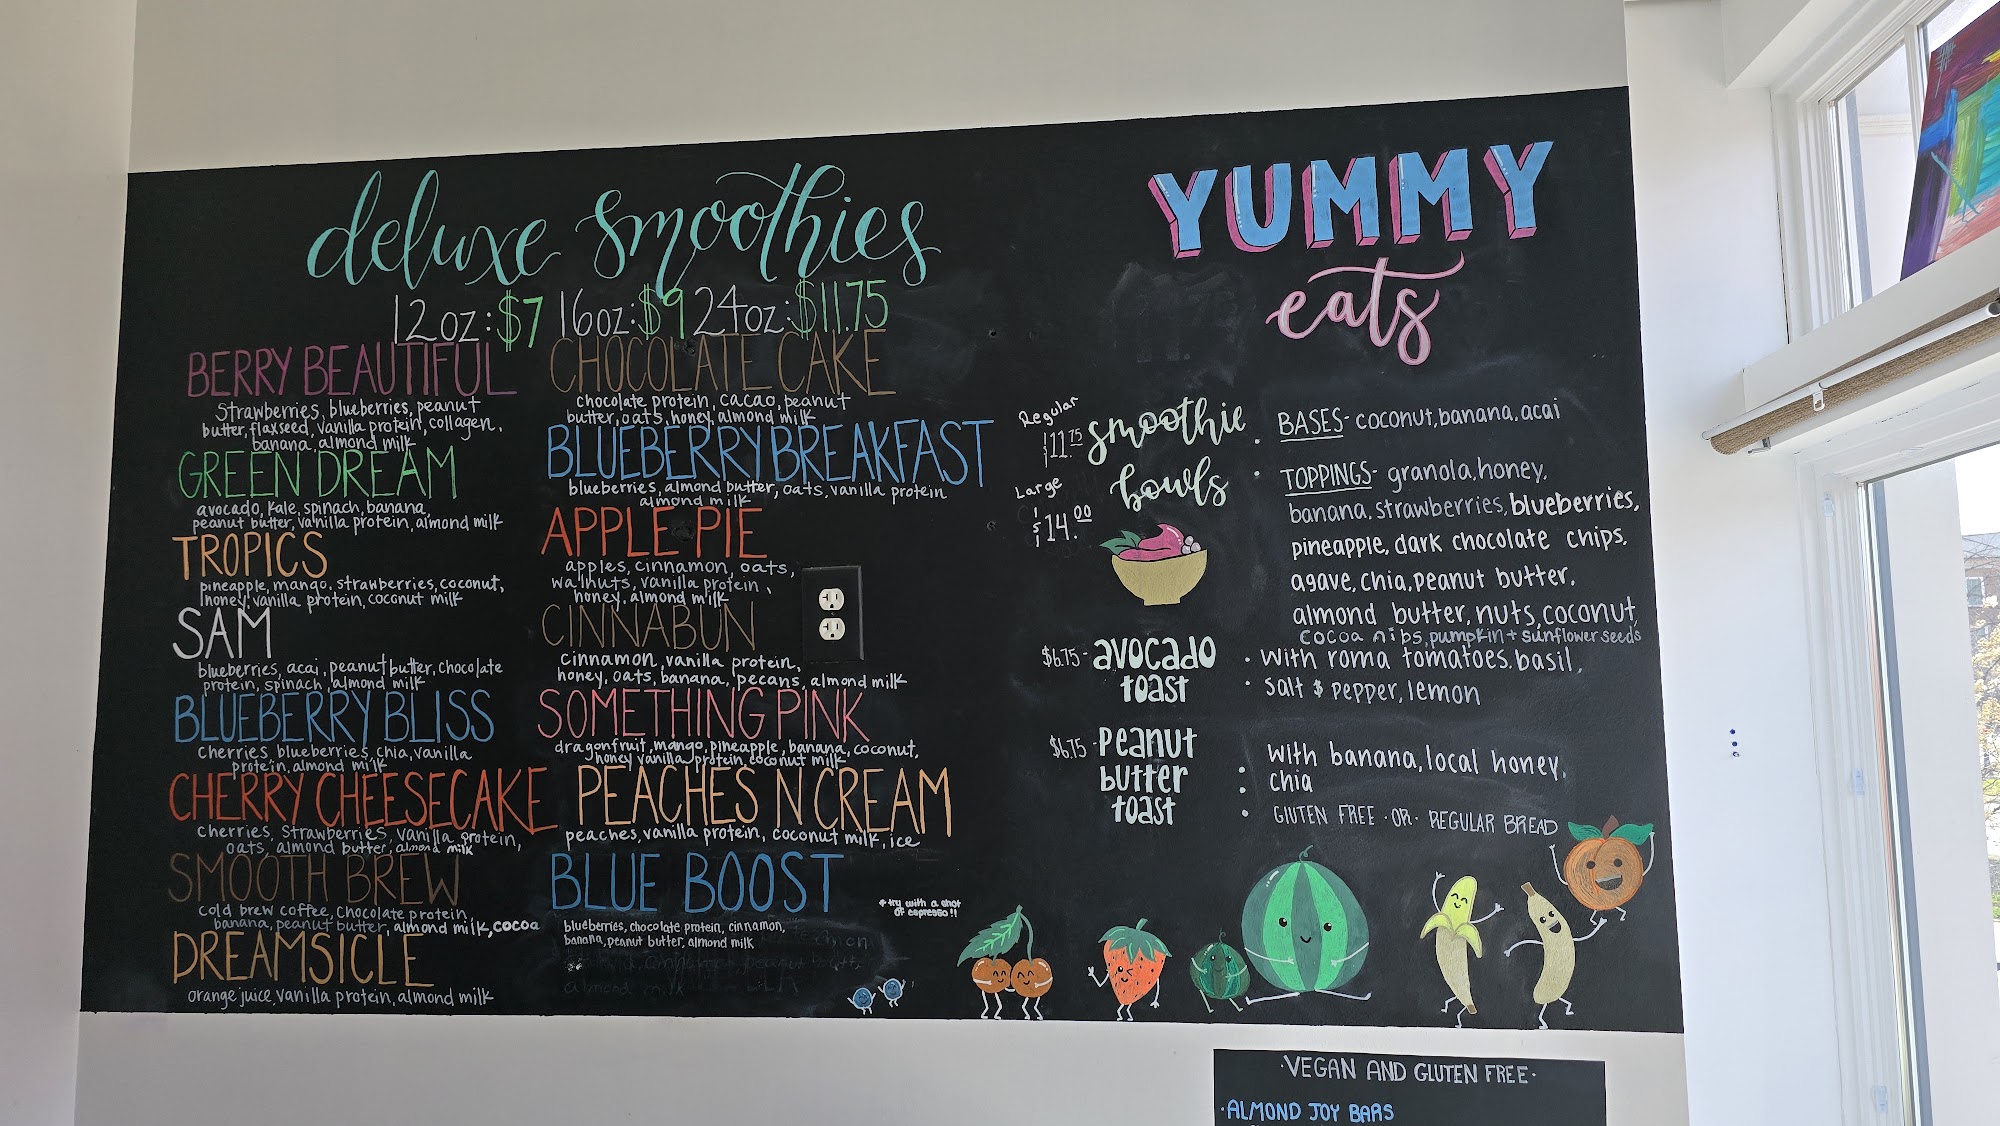 deluxe smoothies
12oz: $7 16oz: $9 24oz: $11.75
BERRY BEAUTIFUL
Strawberries, blueberries, peanut
butter, flaxseed, vanilla protein, collagen,
banana, almond milk
GREEN DREAM
avocado, kale, spinach, banana,
peanut butter, vanilla protein, almond milk
TROPICS
pineapple, mango, strawberries, coconut,
honey, vanilla protein, coconut milk
SAM
blueberries, acai, peanut butter, chocolate
protein, spinach, almond milk
BLUEBERRY BLISS
cherries, blueberries, chia, vanilla
protein, almond milk
CHERRY CHEESECAKE
cherries, strawberries, vanilla protein,
oats, almond butter, almond milk
SMOOTH BREW
cold brew coffee, chocolate protein,
banana, peanut butter, almond milk, cocoa
DREAMSICLE
orange juice, vanilla protein, almond milk
CHOCOLATE CAKE
chocolate protein, cacao, peanut
butter, oats, honey, almond milk
BLUEBERRY BREAKFAST
blueberries, almond butter, oats, vanilla protein
almond milk
APPLE PIE
apples, cinnamon, oats,
walnuts, vanilla protein,
honey, almond milk
CINNABUN
cinnamon, vanilla protein,
honey, oats, banana, pecans, almond milk
SOMETHING PINK
dragonfruit, mango, pineapple, banana, coconut,
honey vanilla protein, coconut milk
PEACHES N CREAM
peaches, vanilla protein, coconut milk, ice
BLUE BOOST
blueberries, chocolate protein, cinnamon,
banana, peanut butter, almond milk
try with a shot
of espresso!!
YUMMY
eats
Regular
$11.75
Large
$14.00
smoothie
bowls
· BASES- coconut, banana, acai
· TOPPINGS- granola, honey,
banana, strawberries, blueberries,
pineapple, dark chocolate chips,
agave, chia, peanut butter,
almond butter, nuts, coconut,
cocoa nibs, pumpkin + sunflower seeds
$6.75- avocado
toast
· with roma tomatoes, basil,
· salt & pepper, lemon
$6.75- peanut
butter
toast
· with banana, local honey,
· chia
· GLUTEN FREE · OR · REGULAR BREAD
·VEGAN AND GLUTEN FREE·
·ALMOND JOY BARS